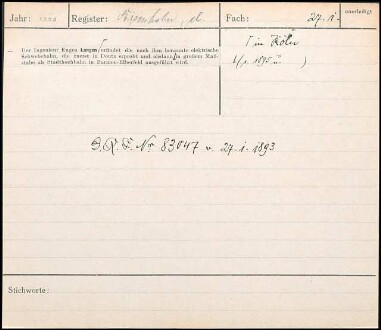 Jahr: 1893 Register: Eisenbahn, d. Fach: 27. 1. unerledigt
— Der Ingenieur Eugen Langen erfindet die nach ihm benannte elektrische
Schwebebahn, die zuerst in Deutz erprobt und alsdann in großem Maß-
stabe als Stadthochbahn in Barmen-Elberfeld ausgeführt wird.
† in Köln
1895
D.R.P. Nr 83047 v. 27. 1. 1893
Stichworte: